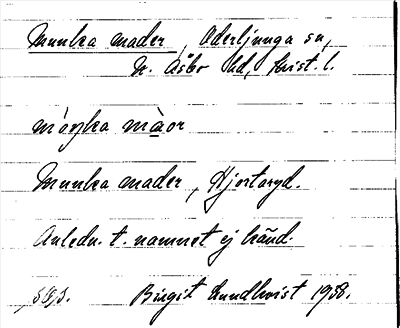 Munka mader, Oderljunga sn,
N. Åsbo hd, Krist. l.
Munka mader, Hjortaryd.
Anledn. t. namnet ej känd.
Birgit Lundkvist 1938.